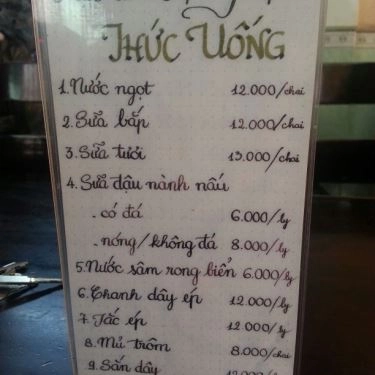 THỨC UỐNG
1. Nước ngọt 12.000/chai
2. Sữa bắp 12.000/chai
3. Sữa tươi 13.000/chai
4. Sữa đậu nành nấu
. có đá 6.000/ly
. nóng/không đá 8.000/ly
5. Nước sâm rong biển 6.000/ly
6. Chanh dây ép 12.000/ly
7. Tắc ép 12.000/ly
8. Mủ trôm 8.000/chai
9. Sắn dây